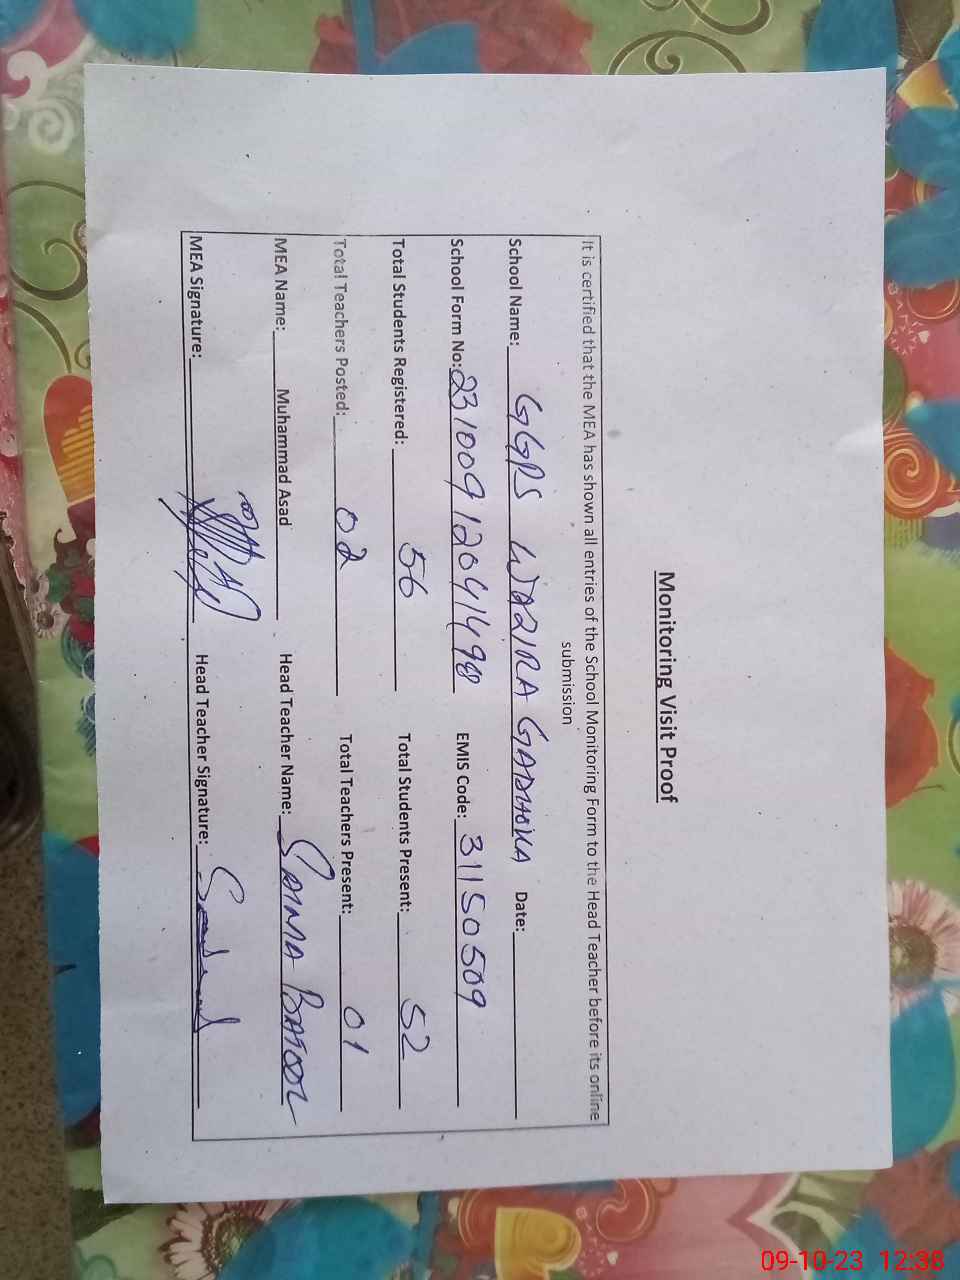 Monitoring Visit Proof
It is certified that the MEA has shown all entries of the School Monitoring Form to the Head Teacher before its online
submission
School Name: GGPS WAZIRA GADHOKA Date:
School Form No: 23100912041498 EMIS Code: 31150509
Total Students Registered: 56 Total Students Present: 52
Total Teachers Posted: 02 Total Teachers Present: 01
MEA Name: Muhammad Asad Head Teacher Name: SAIMA BATOOL
MEA Signature: Head Teacher Signature:
09-10-23 12:38